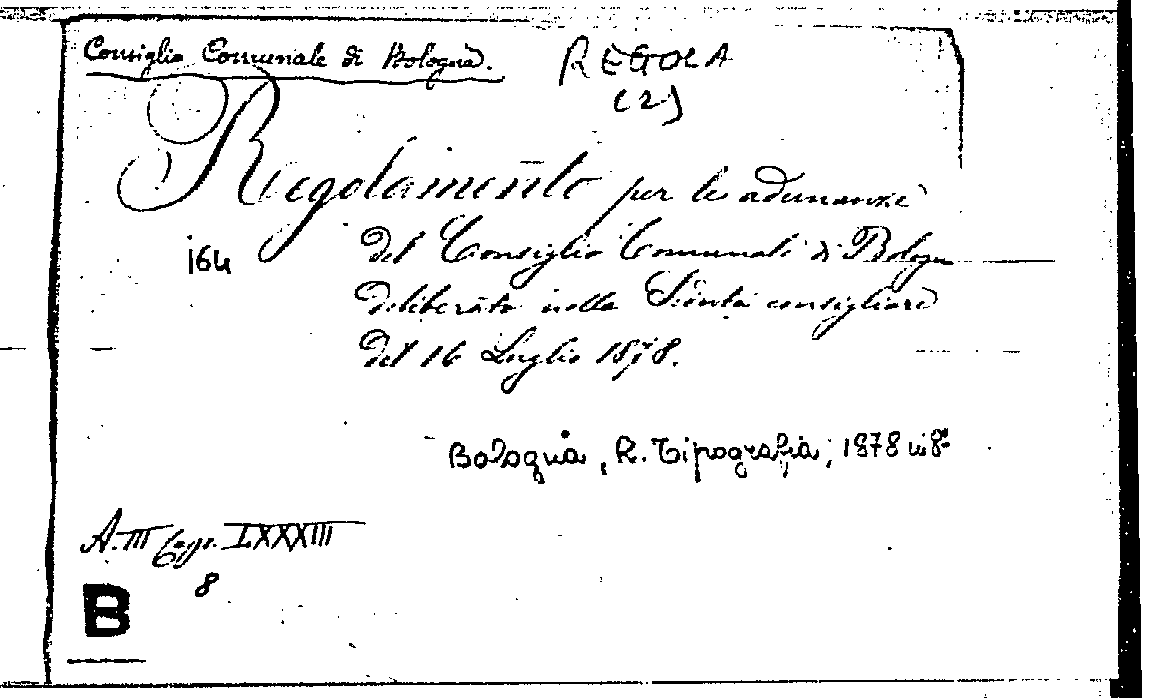 Consiglio Comunale di Bologna.
REGOLA
(2)
Regolamento per le adunanze
del Consiglio Comunale di Bologna
164
deliberato nella Seduta consigliare
del 16 Luglio 1878.
Bologna, R. Tipografia, 1878 in 8°
A. III Caps. LXXXIII
8
B